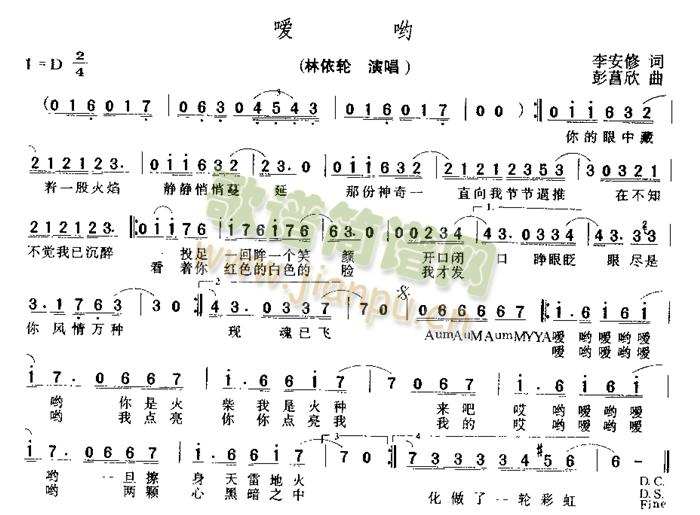 嗳 哟
1=D 2/4
(林依轮 演唱)
李安修 词
彭菖欣 曲
(016017 | 06304543 | 016017 | 00) :011632
你的眼中藏
212123. | 011632 | 23.0 | 011632 | 21212353 | 030321
一股火焰 静静悄悄蔓 延 那份神奇一 直向我节节逼推 在不知
212123. :011761 | 176176 | 63.0 | 00234 | 43.0234 | 43.033
不觉我已沉醉 投足 回眸一个笑 颜 开口闭 口 睁眼眨 眼 尽是
看着你 红色的白色的 脸 我才发
3.1763 :43.0337 | 70 | 066667 :1.6161
你 风情万种 现 魂已飞 AumAuMAumMYYA嗳 哟嗳哟嗳
嗳 哟嗳哟嗳
17.0667 | 1.6617 | 17.0667 | 1.6161
哟 你是火 柴我是火种 来吧 哎 哟嗳哟嗳
哟 我点亮 你你点亮我 我的 哎 哟嗳哟嗳
17.0667 | 1.6617 | 70 :733333#456 | 60
哟 一旦擦 身天雷地火 化做了一轮彩虹 D.C.
哟 两颗 心黑暗之中 D.S.
Fine
歌谱简谱网
www.jianpu.cn